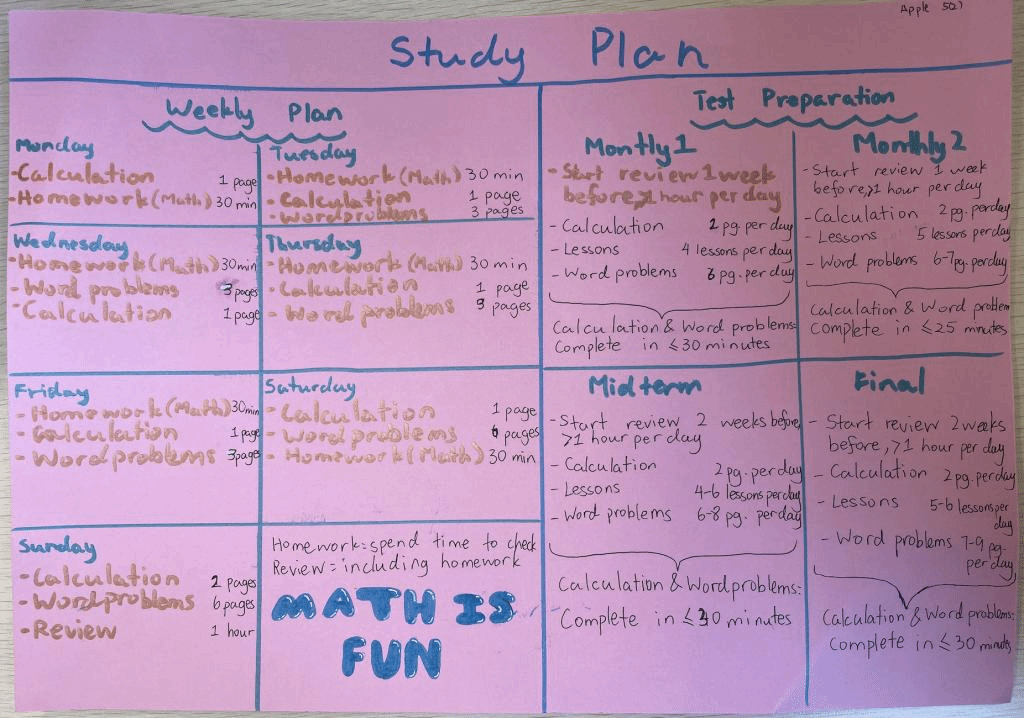 Apple 521
Study Plan
Weekly Plan
Monday
- Calculation 1 page
- Homework (Math) 30 min
Tuesday
- Homework (Math) 30 min
- Calculation 1 page
- Word problems 3 pages
Wednesday
- Homework (Math) 30 min
- Word problems 3 pages
- Calculation 1 page
Thursday
- Homework (Math) 30 min
- Calculation 1 page
- Word problems 3 pages
Friday
- Homework (Math) 30 min
- Calculation 1 page
- Word problems 3 pages
Saturday
- Calculation 1 page
- Word problems 6 pages
- Homework (Math) 30 min
Sunday
- Calculation 2 pages
- Word problems 6 pages
- Review 1 hour
Homework: spend time to check
Review = including homework
MATH IS
FUN
Test Preparation
Montly 1
- Start review 1 week
before, >1 hour per day
- Calculation 2 pg. per day
- Lessons 4 lessons per day
- Word problems 6 pg. per day
Calculation & Word problems:
Complete in ≤30 minutes
Monthly 2
- Start review 1 week
before, >1 hour per day
- Calculation 2 pg. per day
- Lessons 5 lessons per day
- Word problems 6-7 pg. per day
Calculation & Word problem
Complete in ≤25 minutes
Midterm
- Start review 2 weeks before,
>1 hour per day
- Calculation 2 pg. per day
- Lessons 4-6 lessons per day
- Word problems 6-8 pg. per day
Calculation & Word problems:
Complete in ≤ minutes
Final
- Start review 2 weeks
before, >1 hour per day
- Calculation 2 pg. per day
- Lessons 5-6 lessons per
day
- Word problems 7-9 pg.
per day
Calculation & Word problems:
Complete in ≤30 minutes